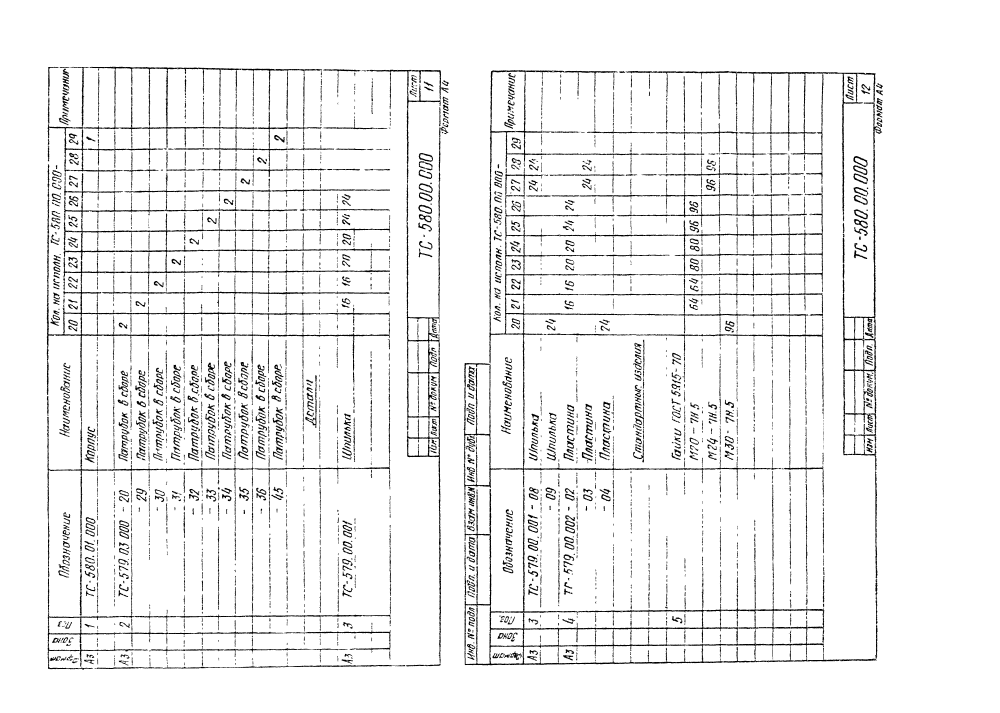 Формат Зона Поз. Обозначение Наименование Кол. на исполн. ТС-580.00.000- Примечание
20 21 22 23 24 25 26 27 28 29
А3 1 ТС-580.01.000 Корпус 1
А3 2 ТС-579.03.000 - 20 Патрубок в сборе 2
- 29 Патрубок в сборе 2
- 30 Патрубок в сборе 2
- 31 Патрубок в сборе 2
- 32 Патрубок в сборе 2
- 33 Патрубок в сборе 2
- 34 Патрубок в сборе 2
- 35 Патрубок в сборе 2
- 36 Патрубок в сборе 2
- 45 Патрубок в сборе 2
Детали
А3 3 ТС-579.00.001 Шпилька 16 16 20 20 24 24
Изм Лист № докум. Подп. Дата
ТС-580.00.000
Лист
11
Формат А4
Инв. № подл Подп. и дата Взам инв № Инв № дубл Подп. и дата
Формат Зона Поз. Обозначение Наименование Кол. на исполн. ТС-580.00.000- Примечание
20 21 22 23 24 25 26 27 28 29
А3 3 ТС-579.00.001 - 08 Шпилька 24 24
- 09 Шпилька 24
А3 4 ТС-579.00.002 - 02 Пластина 16 16 20 20 24 24
- 03 Пластина 24 24
- 04 Пластина 24
Стандартные изделия
5 Гайки ГОСТ 5915-70
М20 - 7Н.5 64 64 80 80 96 96
М24 - 7Н.5 96 96
М30 - 7Н.5 96
Изм Лист № докум. Подп. Дата
ТС-580.00.000
Лист
12
Формат А4